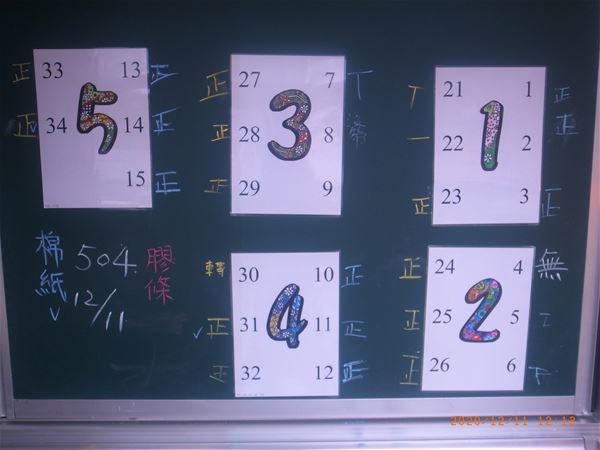 正 33 13 正
正 34 14 正
15 正
5
正 27 7 丅
正 28 8
正 29 9
3
丅 21 1 正
一 22 2 正
正 23 3 正
1
棉紙 504 膠條
12/11
轉 30 10 正
正 31 11 正
正 32 12 正
4
正 24 4 無
正 25 5
正 26 6 下
2
2020/12/11 12:13